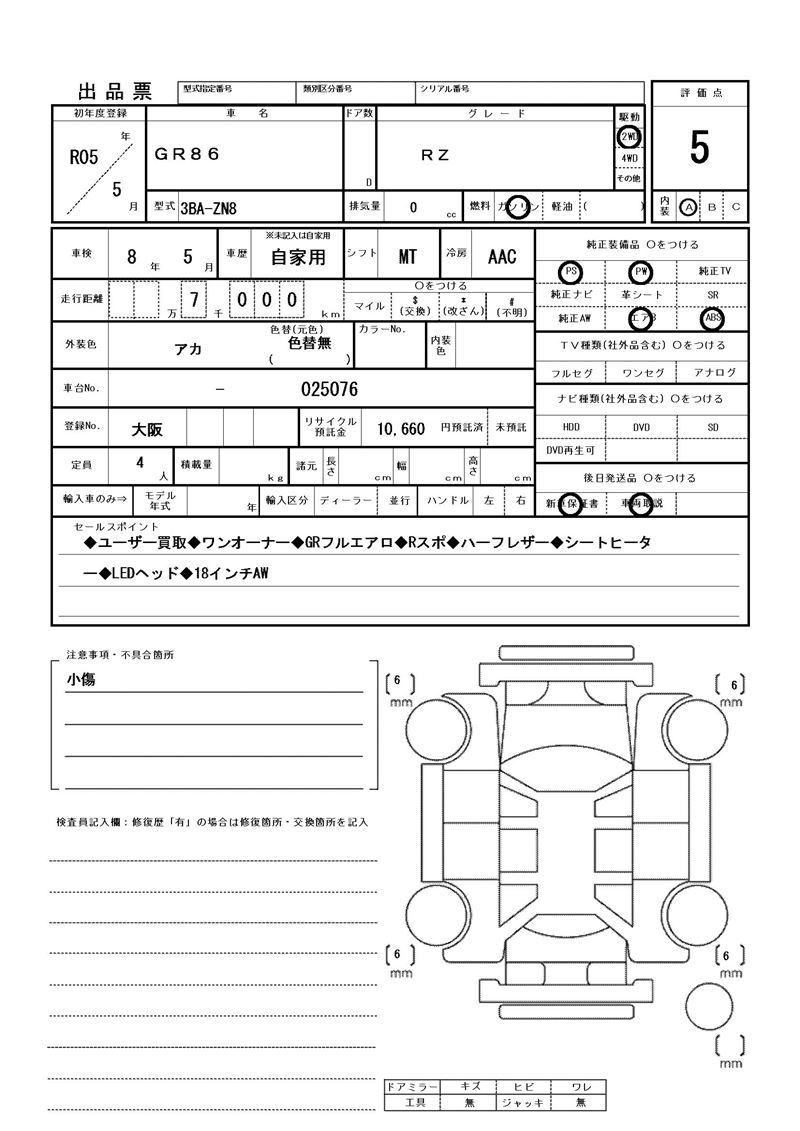 出品票 型式指定番号 類別区分番号 シリアル番号 評価点
初年度登録 車名 ドア数 グレード 駆動
R05 年 GR86 RZ 2WD 5
4WD
5 月 D その他
型式 3BA-ZN8 排気量 0 cc 燃料 ガソリン 軽油 ( ) 内装 A B C
車検 8 年 5 月 車歴 ※未記入は自家用 自家用 シフト MT 冷房 AAC 純正装備品 〇をつける
PS PW 純正TV
走行距離 万 7 千 0 0 0 km 〇をつける 純正ナビ 革シート SR
マイル $ (交換) * (改ざん) # (不明) 純正AW エアB ABS
外装色 アカ 色替(元色) 色替無 ( ) カラーNo. 内装色 TV種類(社外品含む) 〇をつける
フルセグ ワンセグ アナログ
車台No. － 025076 ナビ種類(社外品含む) 〇をつける
登録No. 大阪 リサイクル預託金 10,660 円預託済 未預託 HDD DVD SD
DVD再生可
定員 4 人 積載量 kg 諸元 長さ cm 幅 cm 高さ cm 後日発送品 〇をつける
輸入車のみ⇒ モデル年式 年 輸入区分 ディーラー 並行 ハンドル 左 右 新車保証書 車両取説
セールスポイント
◆ユーザー買取◆ワンオーナー◆GRフルエアロ◆Rスポ◆ハーフレザー◆シートヒータ
ー◆LEDヘッド◆18インチAW
注意事項・不具合箇所
小傷
6 mm
6 mm
検査員記入欄：修復歴「有」の場合は修復箇所・交換箇所を記入
6 mm
6 mm
mm
ドアミラー キズ ヒビ ワレ
工具 無 ジャッキ 無